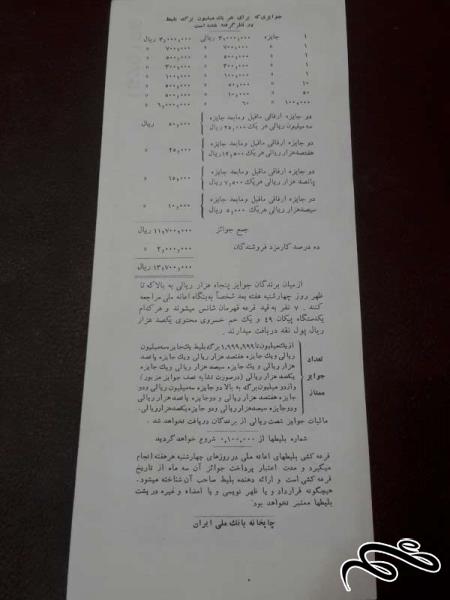 جوایزی که برای هر یک میلیون برگ بلیط
در نظر گرفته شده است
۱ جایزه ۳,۰۰۰,۰۰۰ ریالی ۳,۰۰۰,۰۰۰ ریال
۱ " ۷۰۰,۰۰۰ " ۷۰۰,۰۰۰ "
۱ " ۵۰۰,۰۰۰ " ۵۰۰,۰۰۰ "
۱ " ۳۰۰,۰۰۰ " ۳۰۰,۰۰۰ "
۱ " ۱۰۰,۰۰۰ " ۱۰۰,۰۰۰ "
۱۰ " ۵۰,۰۰۰ " ۵۰۰,۰۰۰ "
۵۰ " ۱۰,۰۰۰ " ۵۰۰,۰۰۰ "
۱۰۰,۰۰۰ " ۶۰ " ۶,۰۰۰,۰۰۰ "
دو جایزه ارفاقی ماقبل و مابعد جایزه
سه میلیون ریالی هر یک ۲۵,۰۰۰ ریال
۵۰,۰۰۰ ریال
دو جایزه ارفاقی ماقبل و مابعد جایزه
هفتصد هزار ریالی هر یک ۱۲,۵۰۰ ریال
۲۵,۰۰۰ "
دو جایزه ارفاقی ماقبل و مابعد جایزه
پانصد هزار ریالی هر یک ۷,۵۰۰ ریال
۱۵,۰۰۰ "
دو جایزه ارفاقی ماقبل و مابعد جایزه
سیصد هزار ریالی هر یک ۵,۰۰۰ ریال
۱۰,۰۰۰ "
جمع جوائز ۱۱,۷۰۰,۰۰۰ ریال
ده درصد کارمزد فروشندگان ۲,۰۰۰,۰۰۰ "
۱۳,۷۰۰,۰۰۰ ریال
از میان برندگان جوایز پنجاه هزار ریالی به بالا که تا
ظهر روز چهارشنبه هفته بعد شخصاً به بنگاه اعانه ملی مراجعه
کنند . ۷ نفر به قید قرعه قهرمان شانس میشوند و هر کدام
یکدستگاه پیکان ۴۹ و یک خم خسروی محتوی یکصد هزار
ریال پول نقد دریافت میدارند .
تعداد جوایز ممتاز
از یک میلیون تا ۱,۹۹۹,۹۹۹ برگ بلیط یک جایزه سه میلیون
ریالی و یک جایزه هفتصد هزار ریالی و یک جایزه پانصد
هزار ریالی و یک جایزه سیصد هزار ریالی و یک جایزه
یکصد هزار ریالی (در صورت تشابه نصف جوایز مزبور)
و از دو میلیون برگ به بالا دو جایزه سه میلیون ریالی و دو
جایزه هفتصد هزار ریالی و دو جایزه پانصد هزار ریالی
و دو جایزه سیصد هزار ریالی و دو جایزه یکصد هزار ریالی.
مالیات جوایز شصت ریالی از برندگان دریافت نخواهد شد .
شماره بلیطها از ۰,۱۰۰,۰۰۰ شروع خواهد گردید
قرعه کشی بلیطهای اعانه ملی در روزهای چهارشنبه هر هفته انجام
میگیرد و مدت اعتبار پرداخت جوائز آن سه ماه از تاریخ
قرعه کشی است و ارائه دهنده بلیط صاحب آن شناخته میشود.
هیچگونه قرارداد و یا ظهر نویسی و یا امضاء و غیره در پشت
بلیطها معتبر نخواهد بود.
چاپخانه بانک ملی ایران